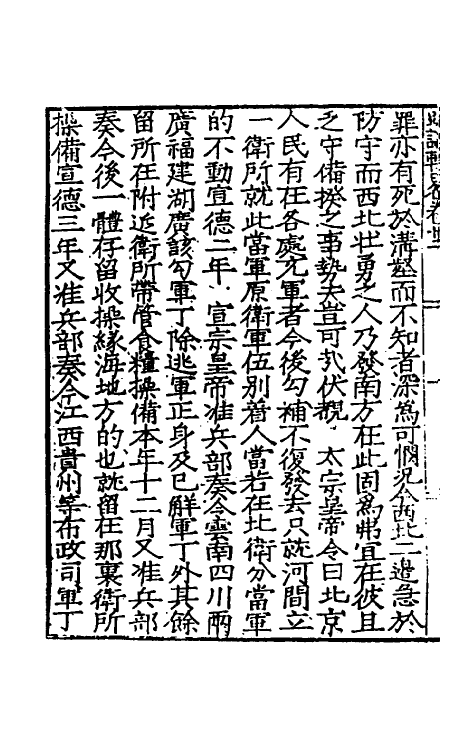 罪亦有死於溝壑而不知者深為可憫況今西北二邊急於
防守而西北壮勇之人乃發南方在此固為弗宜在彼且
乏守備揆之事勢夫豈可㢤伏覩 太宗皇帝令曰北京
人民有在各處充軍者今後勾補不復發去只就河間立
一衛所就此當軍原衛軍伍別着人當若在北衛分當軍
的不動宣德二年 宣宗皇帝准兵部奏令雲南四川兩
廣福建湖廣該勾軍丁除逃軍正身及已觧軍丁外其餘
留所在附近衛所帶管食糧操備本年十二月又准兵部
奏今後一體存留收操緣海地方的也就留在那裏衛所
操備宣德三年又准兵部奏令江西貴州等布政司軍丁